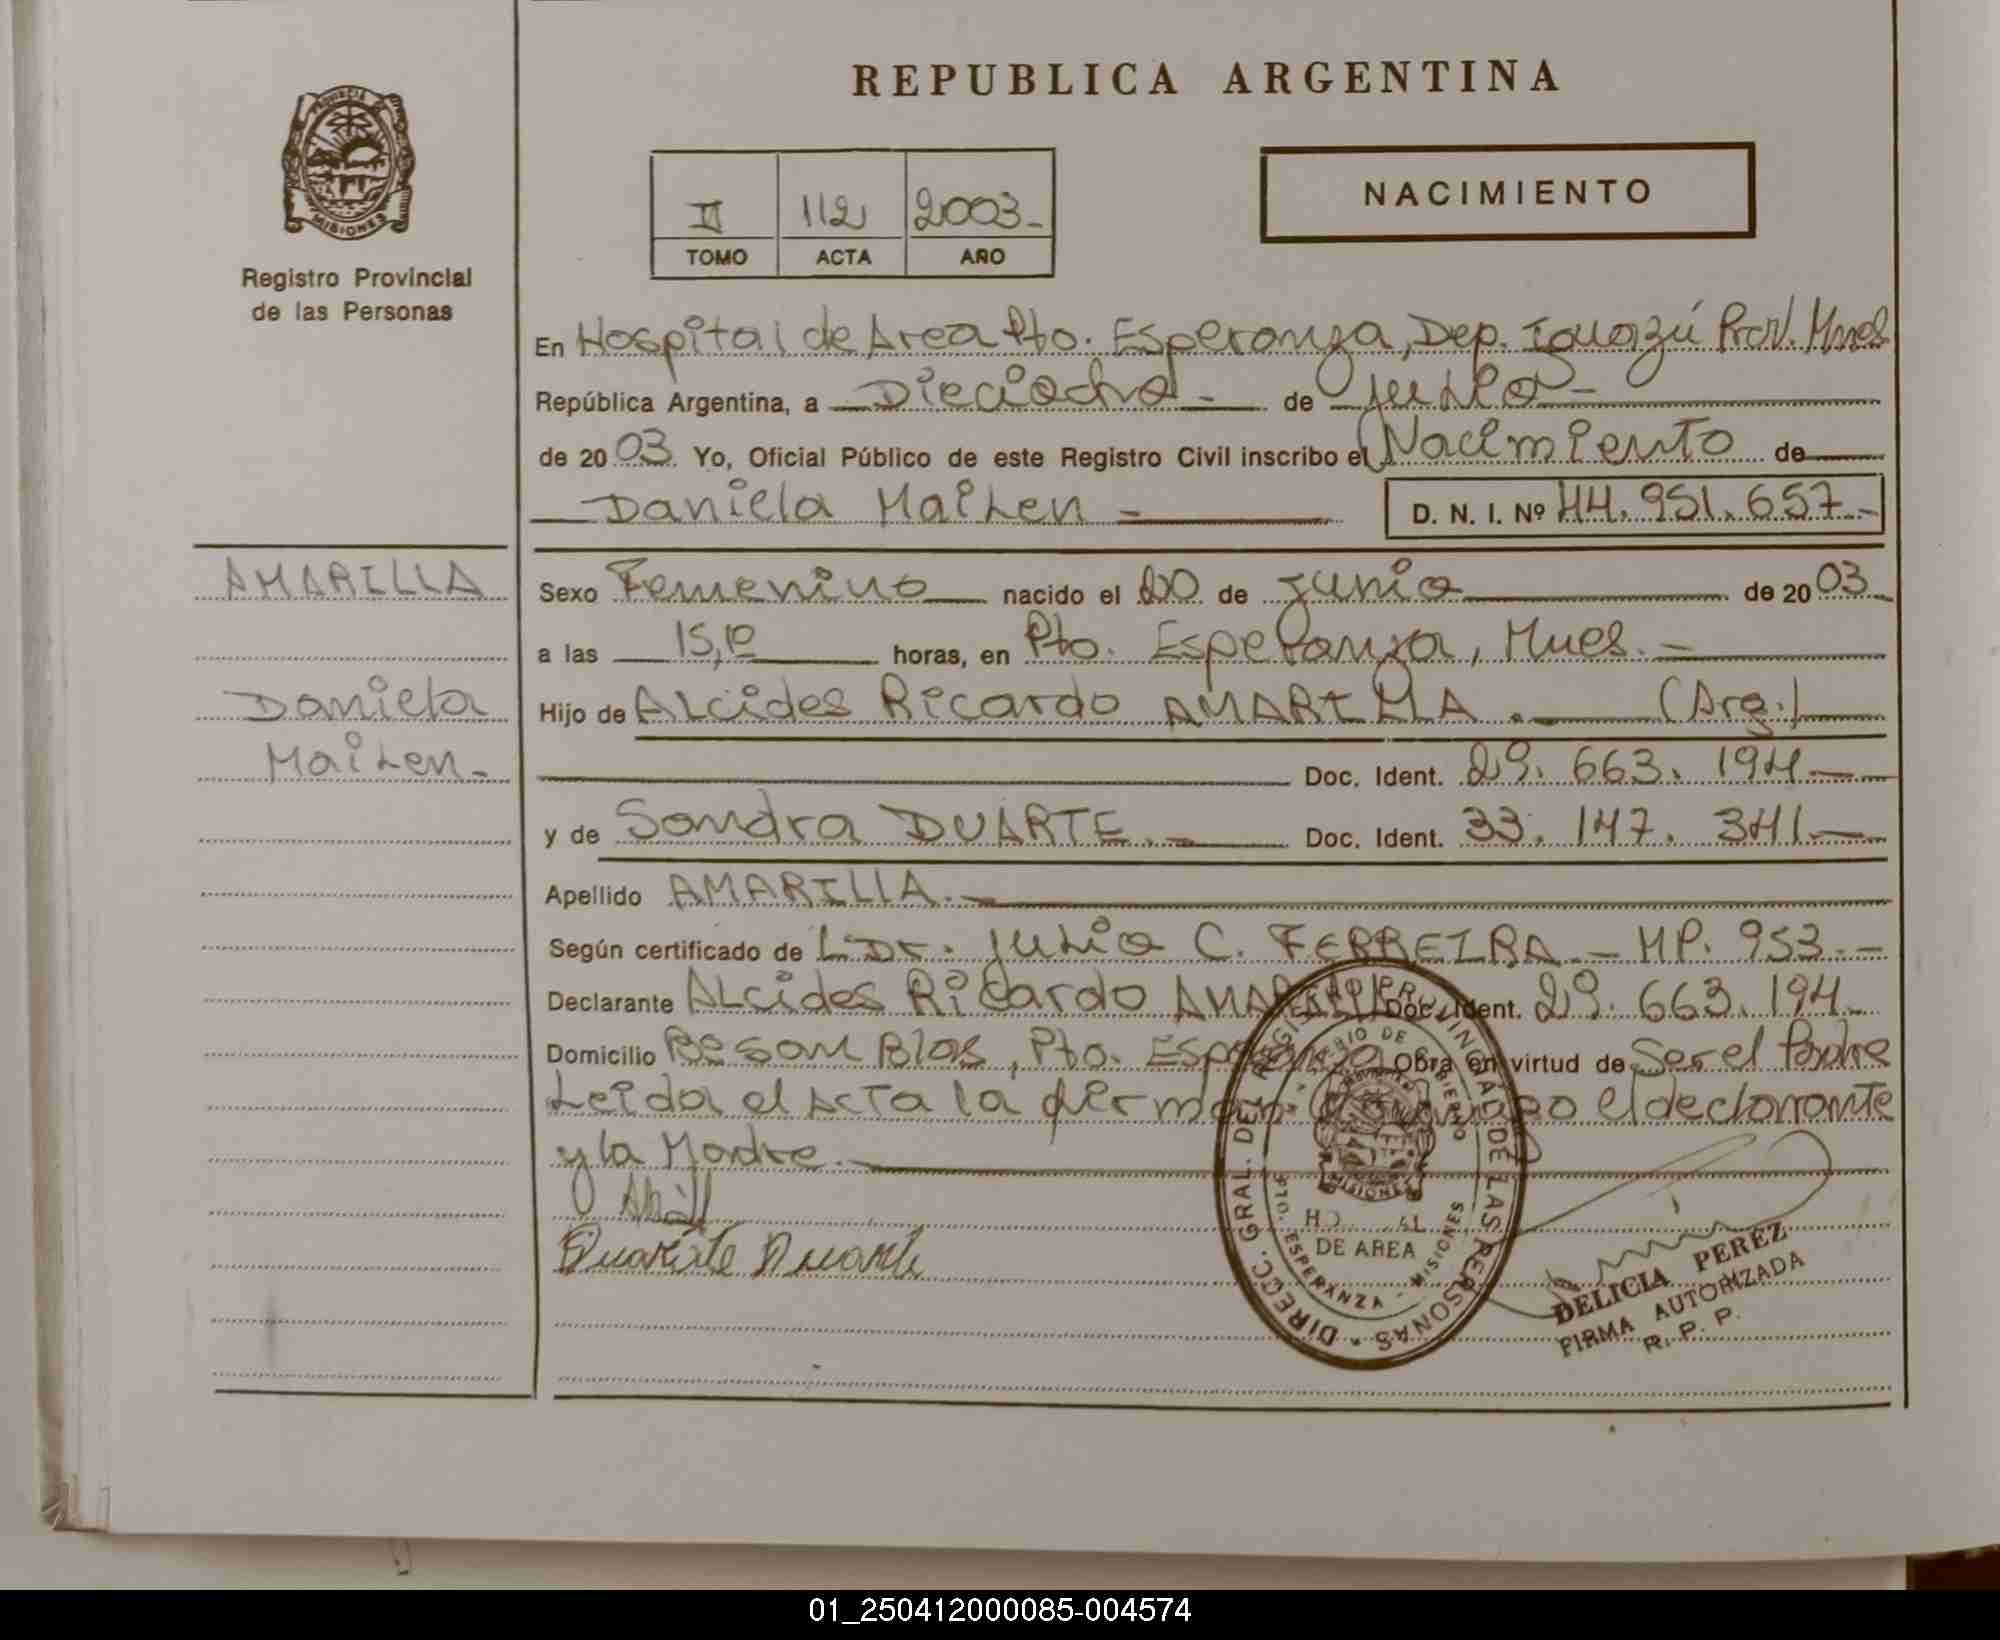 REPUBLICA ARGENTINA
PROVINCIA DE
MISIONES
Registro Provincial
de las Personas
II 112 2003-
TOMO ACTA AÑO
NACIMIENTO
En Hospital de Area Pto. Esperanza, Dep. Iguazú Prov. Mnes
República Argentina, a Dieciocho - de Julio -
de 2003 Yo, Oficial Público de este Registro Civil inscribo el Nacimiento de
Daniela Mailen - D. N. I. Nº 44.951.657.-
AMARILLA
Daniela
Mailen-
Sexo Femenino nacido el 20 de junio de 2003
a las 15,10 horas, en Pto. Esperanza, Mnes.-
Hijo de Alcides Ricardo AMARILLA.- (Arg.)
Doc. Ident. 29.663.194-
y de Sandra DUARTE.- Doc. Ident. 33.147.341.-
Apellido AMARILLA.-
Según certificado de Dr. Julio C. FERREIRA - MP. 953.-
Declarante Alcides Ricardo AMARILLA Doc. Ident. 29.663.194.-
Domicilio Bº San Blas, Pto. Esperanza Obra en virtud de Ser el Padre
Leida el Acta la firman el declarante
y la Madre.-
Duarte
DIRECC. GRAL. DEL REGISTRO PROVINCIAL DE LAS PERSONAS
MINISTERIO DE GOBIERNO
MISIONES
HOSPITAL
DE AREA
PTO. ESPERANZA - MISIONES
DELICIA PEREZ
FIRMA AUTORIZADA
R. P. P.
01_250412000085-004574